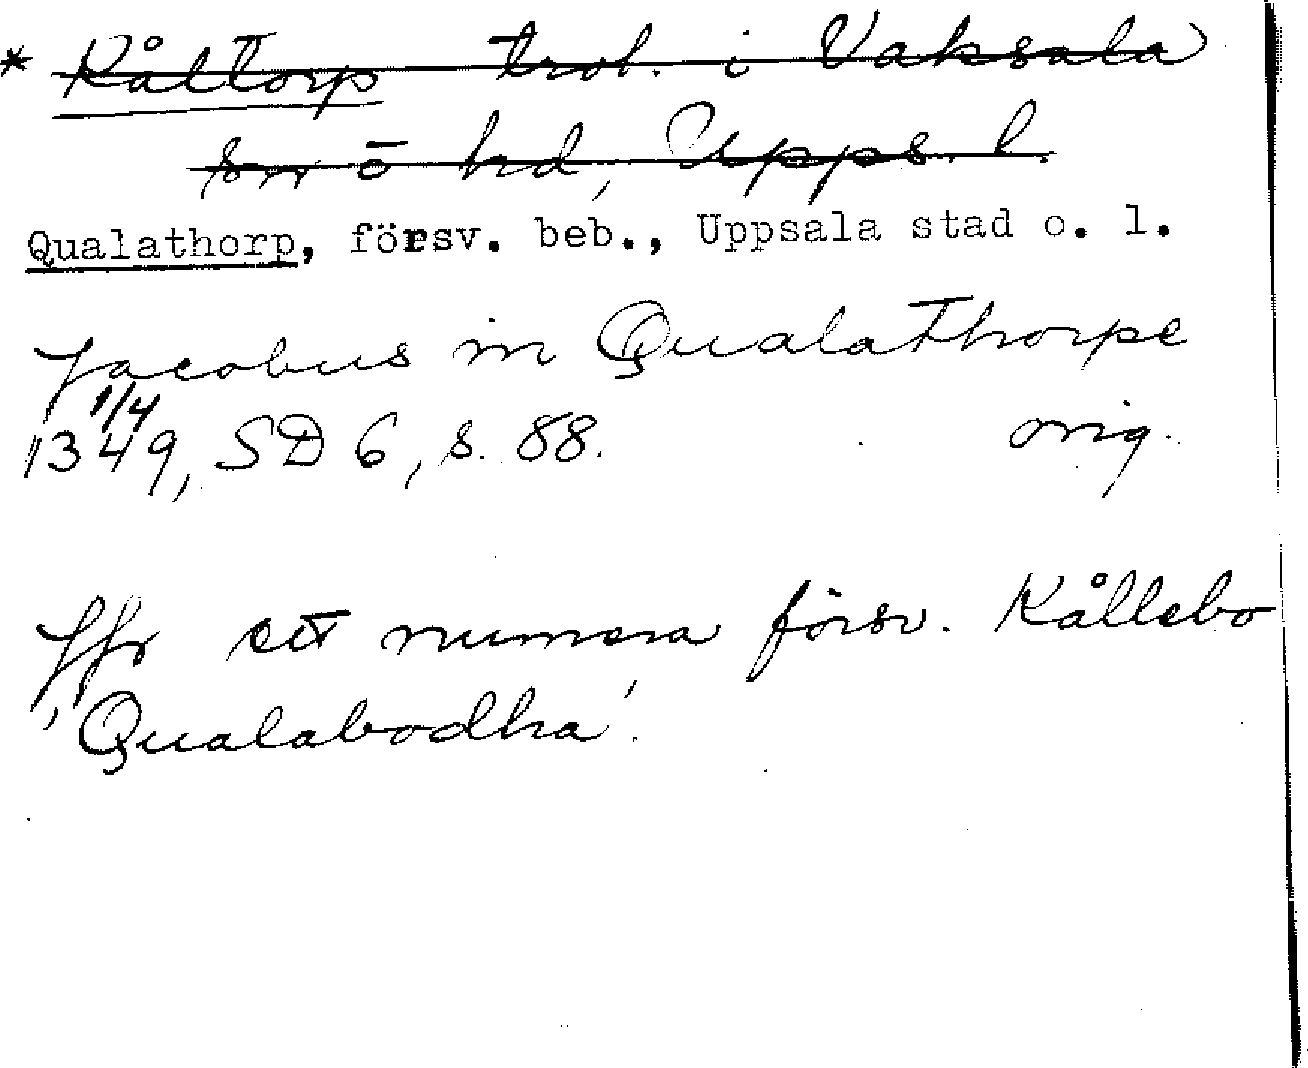 * Kåltorp trol. i Vaksala
sn ö hd, Upps. l.
Qualathorp, försv. beb., Uppsala stad o. l.
Jacobus in Qualathorpe
1/4
1349, SD 6, s. 88. orig.
Jfr ett numera försv. Kållebo
'Qualabodha'.